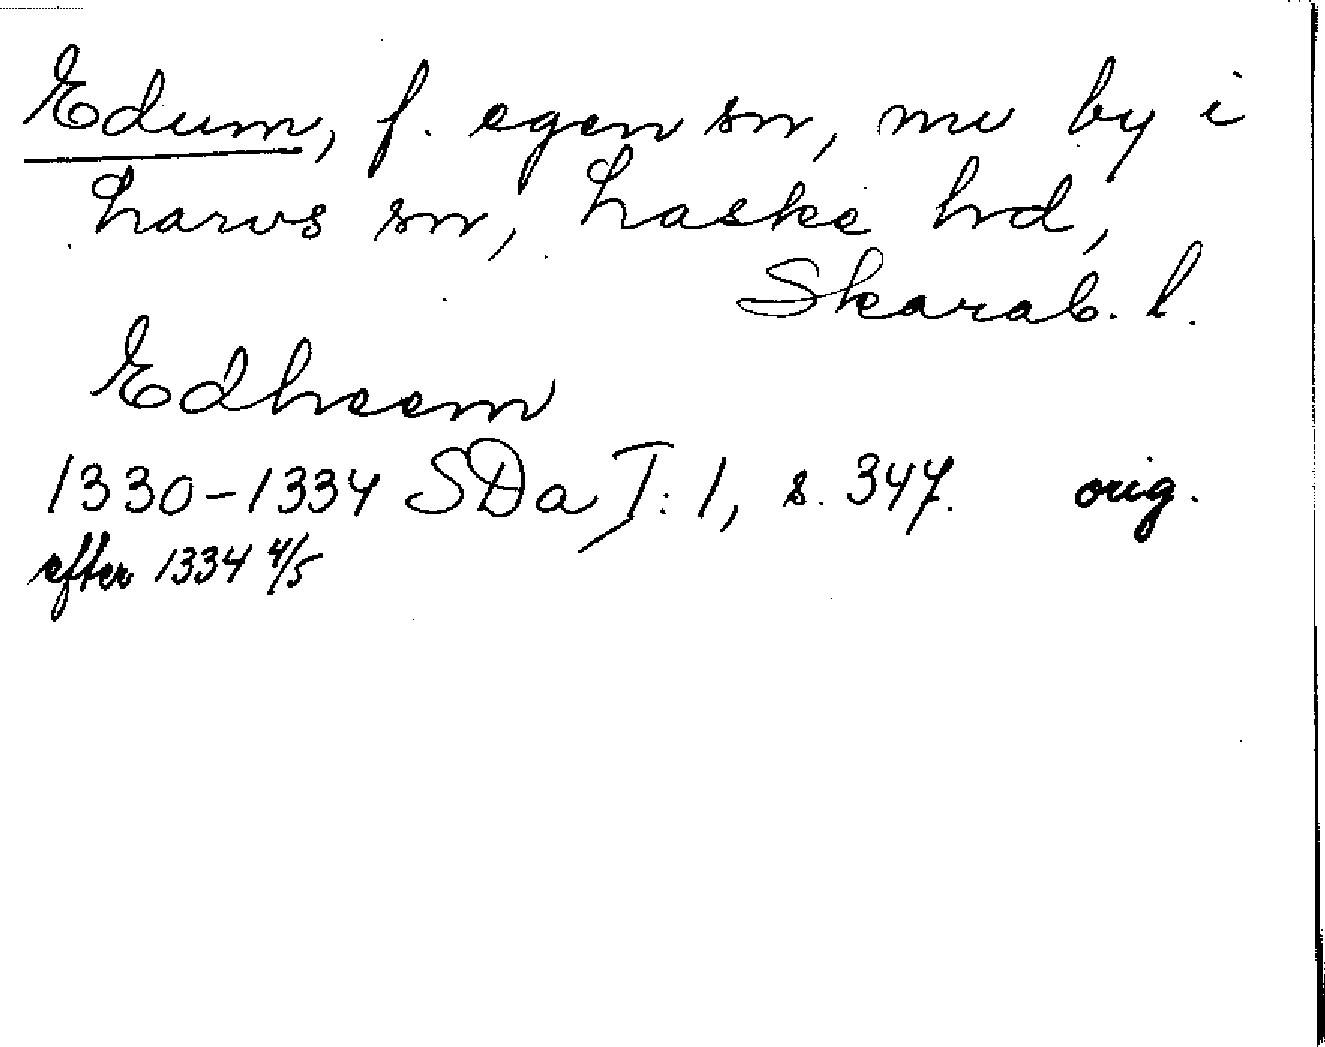 Edum, f. egen sn, nu by i
Larvs sn, Laske hd,
Skarab. l.
Edheem
1330-1334 SDa I: 1, s. 347. orig.
efter 1334 4/5